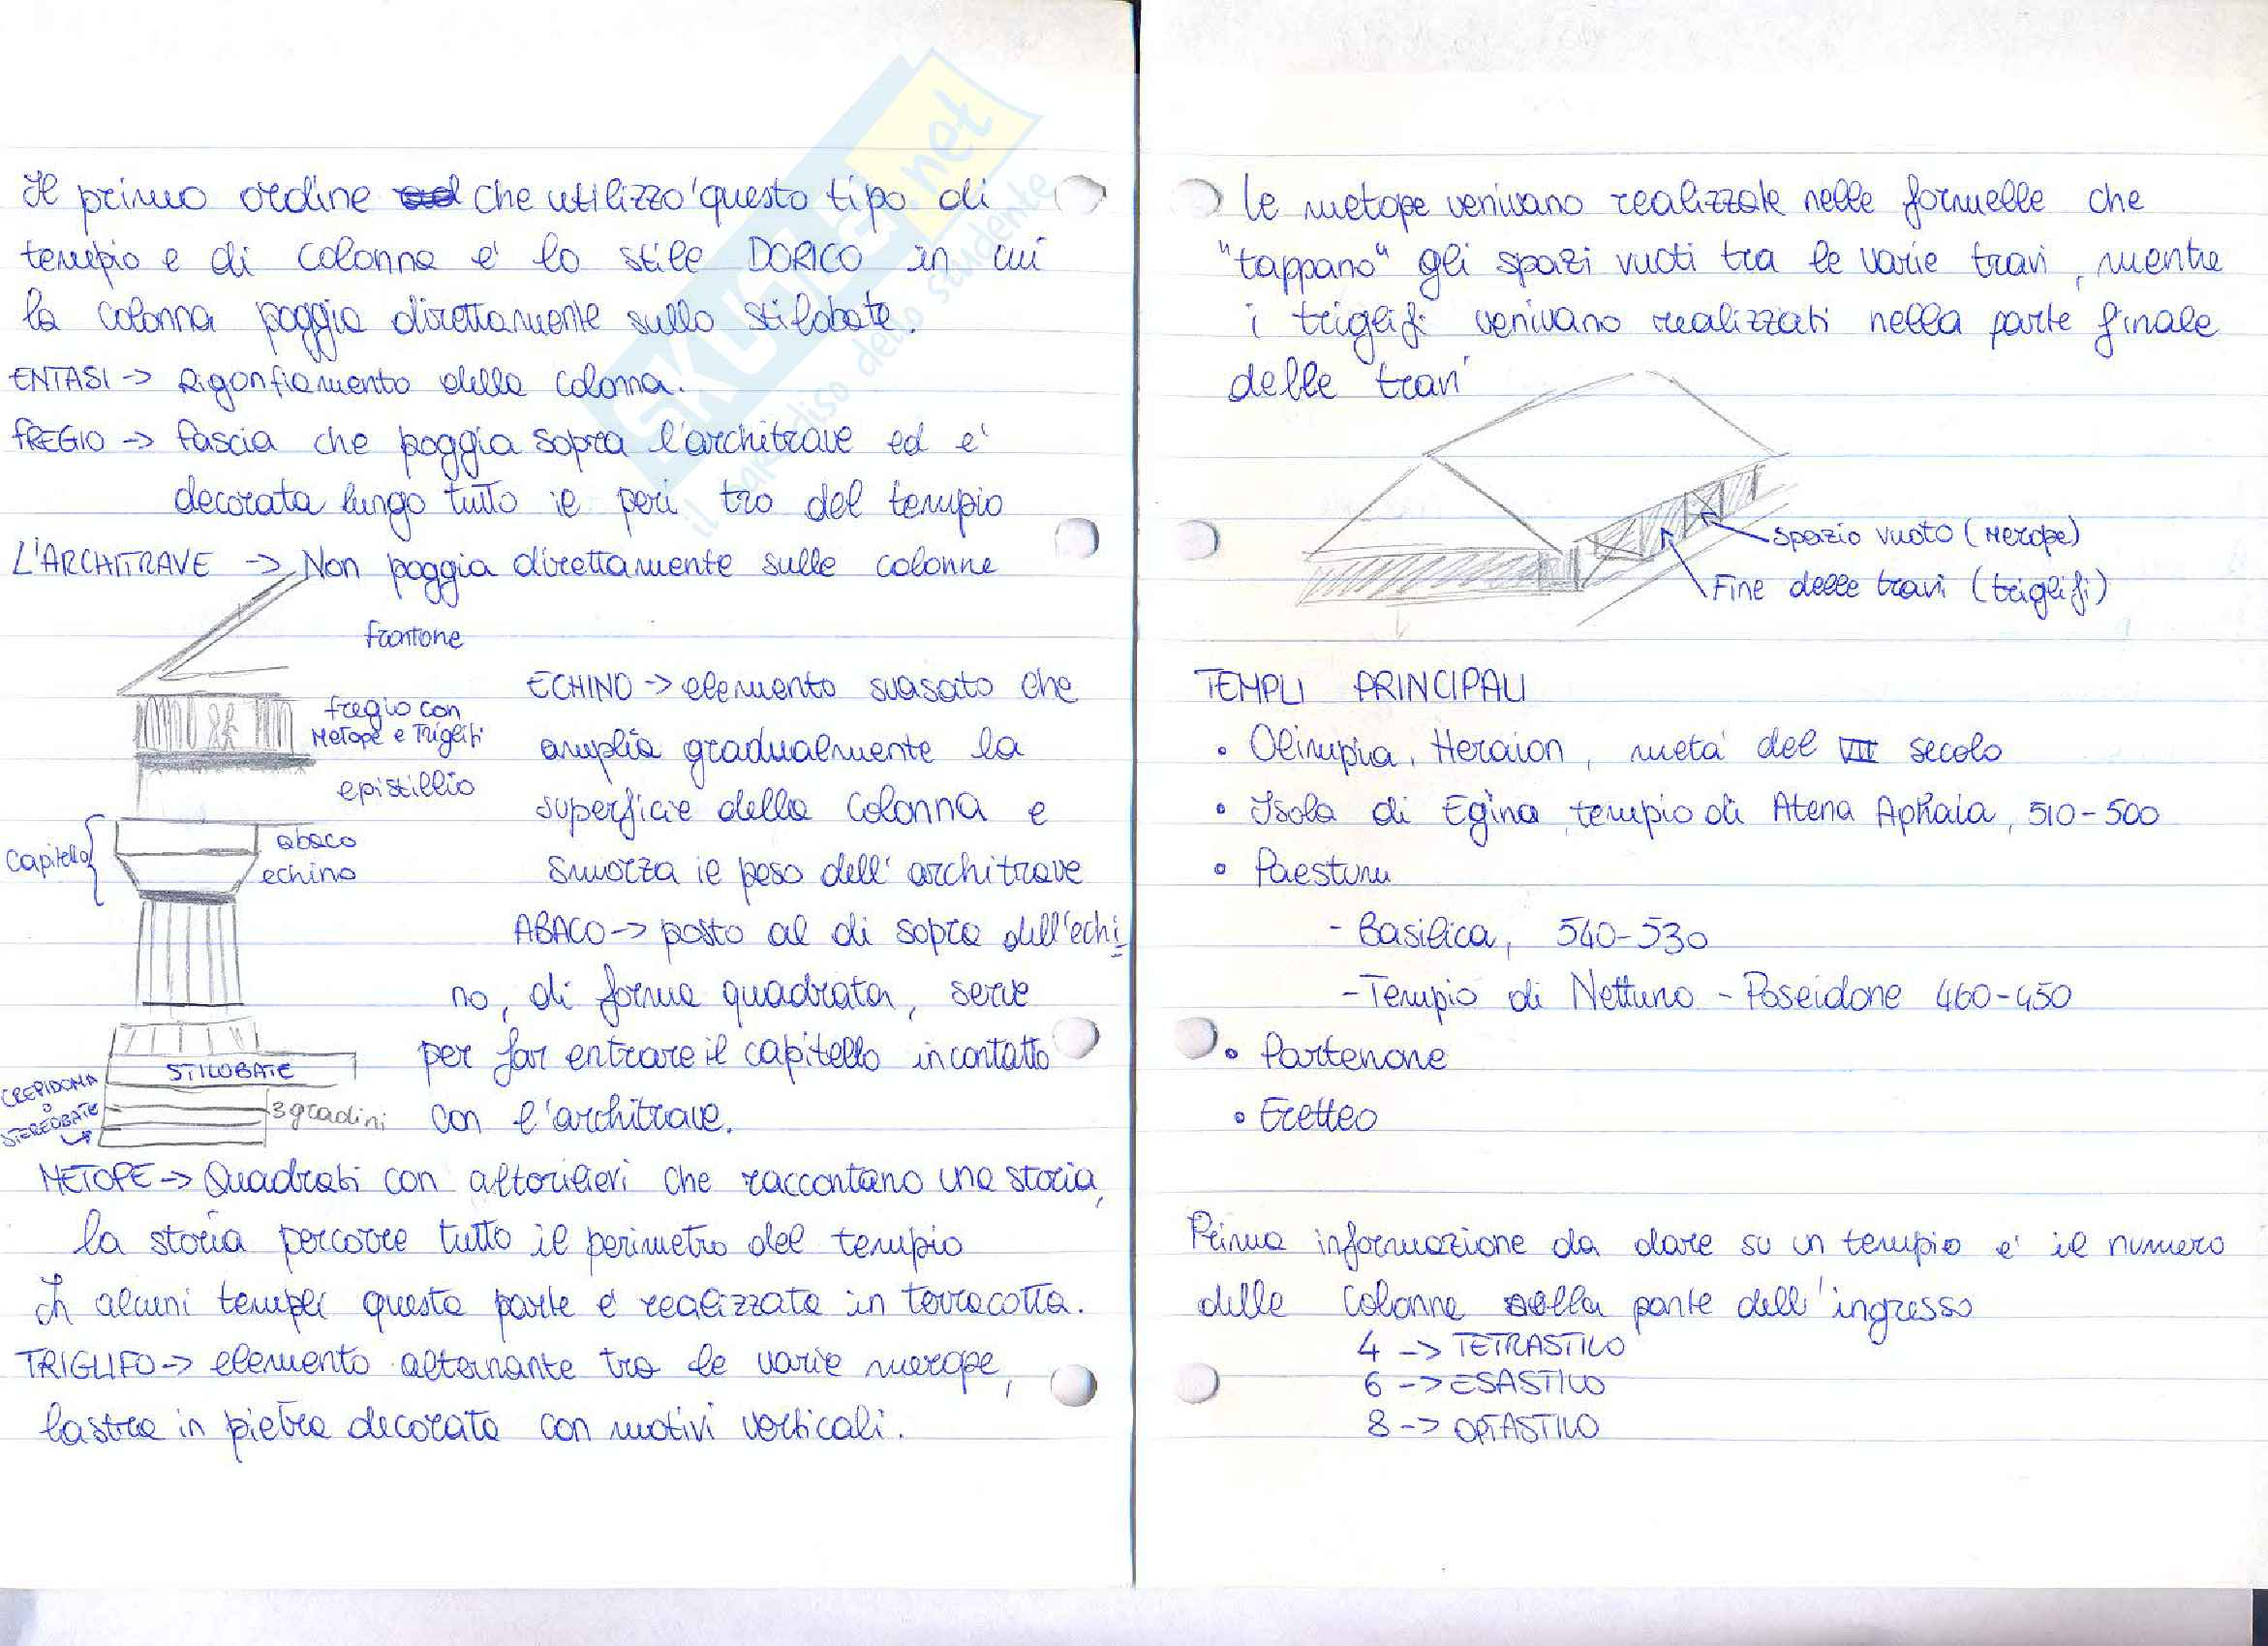 Il primo ordine che utilizzo' questo tipo di
tempio e di colonna e' lo stile DORICO in cui
la colonna poggia direttamente sullo stilobate.
ENTASI -> Rigonfiamento della colonna.
FREGIO -> Fascia che poggia sopra l'architrave ed e'
decorata lungo tutto il peri tro del tempio
L'ARCHITRAVE -> Non poggia direttamente sulle colonne
frontone
fregio con
Metope e Triglifi
epistillio
Capitello
abaco
echino
STILOBATE
CREPIDOMA
o
STEREOBATE
3 gradini
ECHINO -> elemento svasato che
amplia gradualmente la
superficie della colonna e
smorza il peso dell'architrave
ABACO -> posto al di sopra dell'echi
no, di forma quadrata, serve
per far entrare il capitello in contatto
con l'architrave.
METOPE -> Quadrati con altorilievi che raccontano una storia,
la storia percorre tutto il perimetro del tempio
In alcuni templi questa parte e' realizzata in terracotta.
TRIGLIFO -> elemento alternante tra le varie merope,
lastra in pietra decorata con motivi verticali.
le metope venivano realizzate nelle formelle che
"tappano" gli spazi vuoti tra le varie travi, mentre
i triglifi venivano realizzati nella parte finale
delle travi
Spazio vuoto (Merope)
Fine delle travi (triglifi)
TEMPLI PRINCIPALI
• Olimpia, Heraion, meta' del VII secolo
• Isola di Egina tempio di Atena Aphaia, 510-500
• Paestum
- Basilica, 540-530
- Tempio di Nettuno - Poseidone 460-450
• Partenone
• Eretteo
Prima informazione da dare su un tempio e' il numero
delle colonne nella parte dell'ingresso
4 -> TETRASTILO
6 -> ESASTILO
8 -> OPTASTILO
SKUOLA.net
il paradiso dello studente